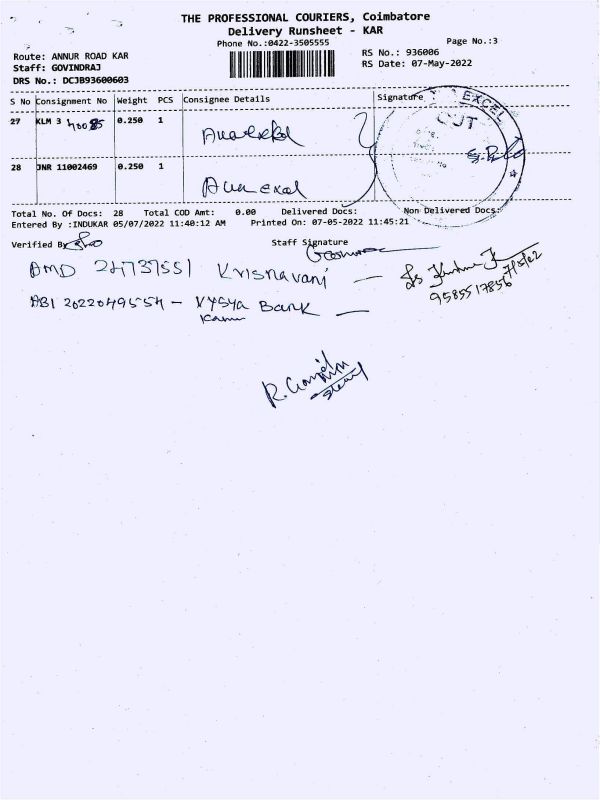 THE PROFESSIONAL COURIERS, Coimbatore
Delivery Runsheet - KAR
Phone No.:0422-3505555
Page No.:3
Route: ANNUR ROAD KAR
RS No.: 936006
Staff: GOVINDRAJ
RS Date: 07-May-2022
DRS No.: DCJB93600603
S No Consignment No Weight PCS Consignee Details Signature
27 KLM 3 0.250 1
28 JNR 11002469 0.250 1
EXCEL
OUT
Total No. Of Docs: 28 Total COD Amt: 0.00 Delivered Docs: Non Delivered Docs:
Entered By :INDUKAR 05/07/2022 11:40:12 AM Printed On: 07-05-2022 11:45:21
Verified By
Staff Signature
AMD 24737551 Krisnavani —
7/5/22
9585517856
ABI 2022049554 - Vysya Bank —